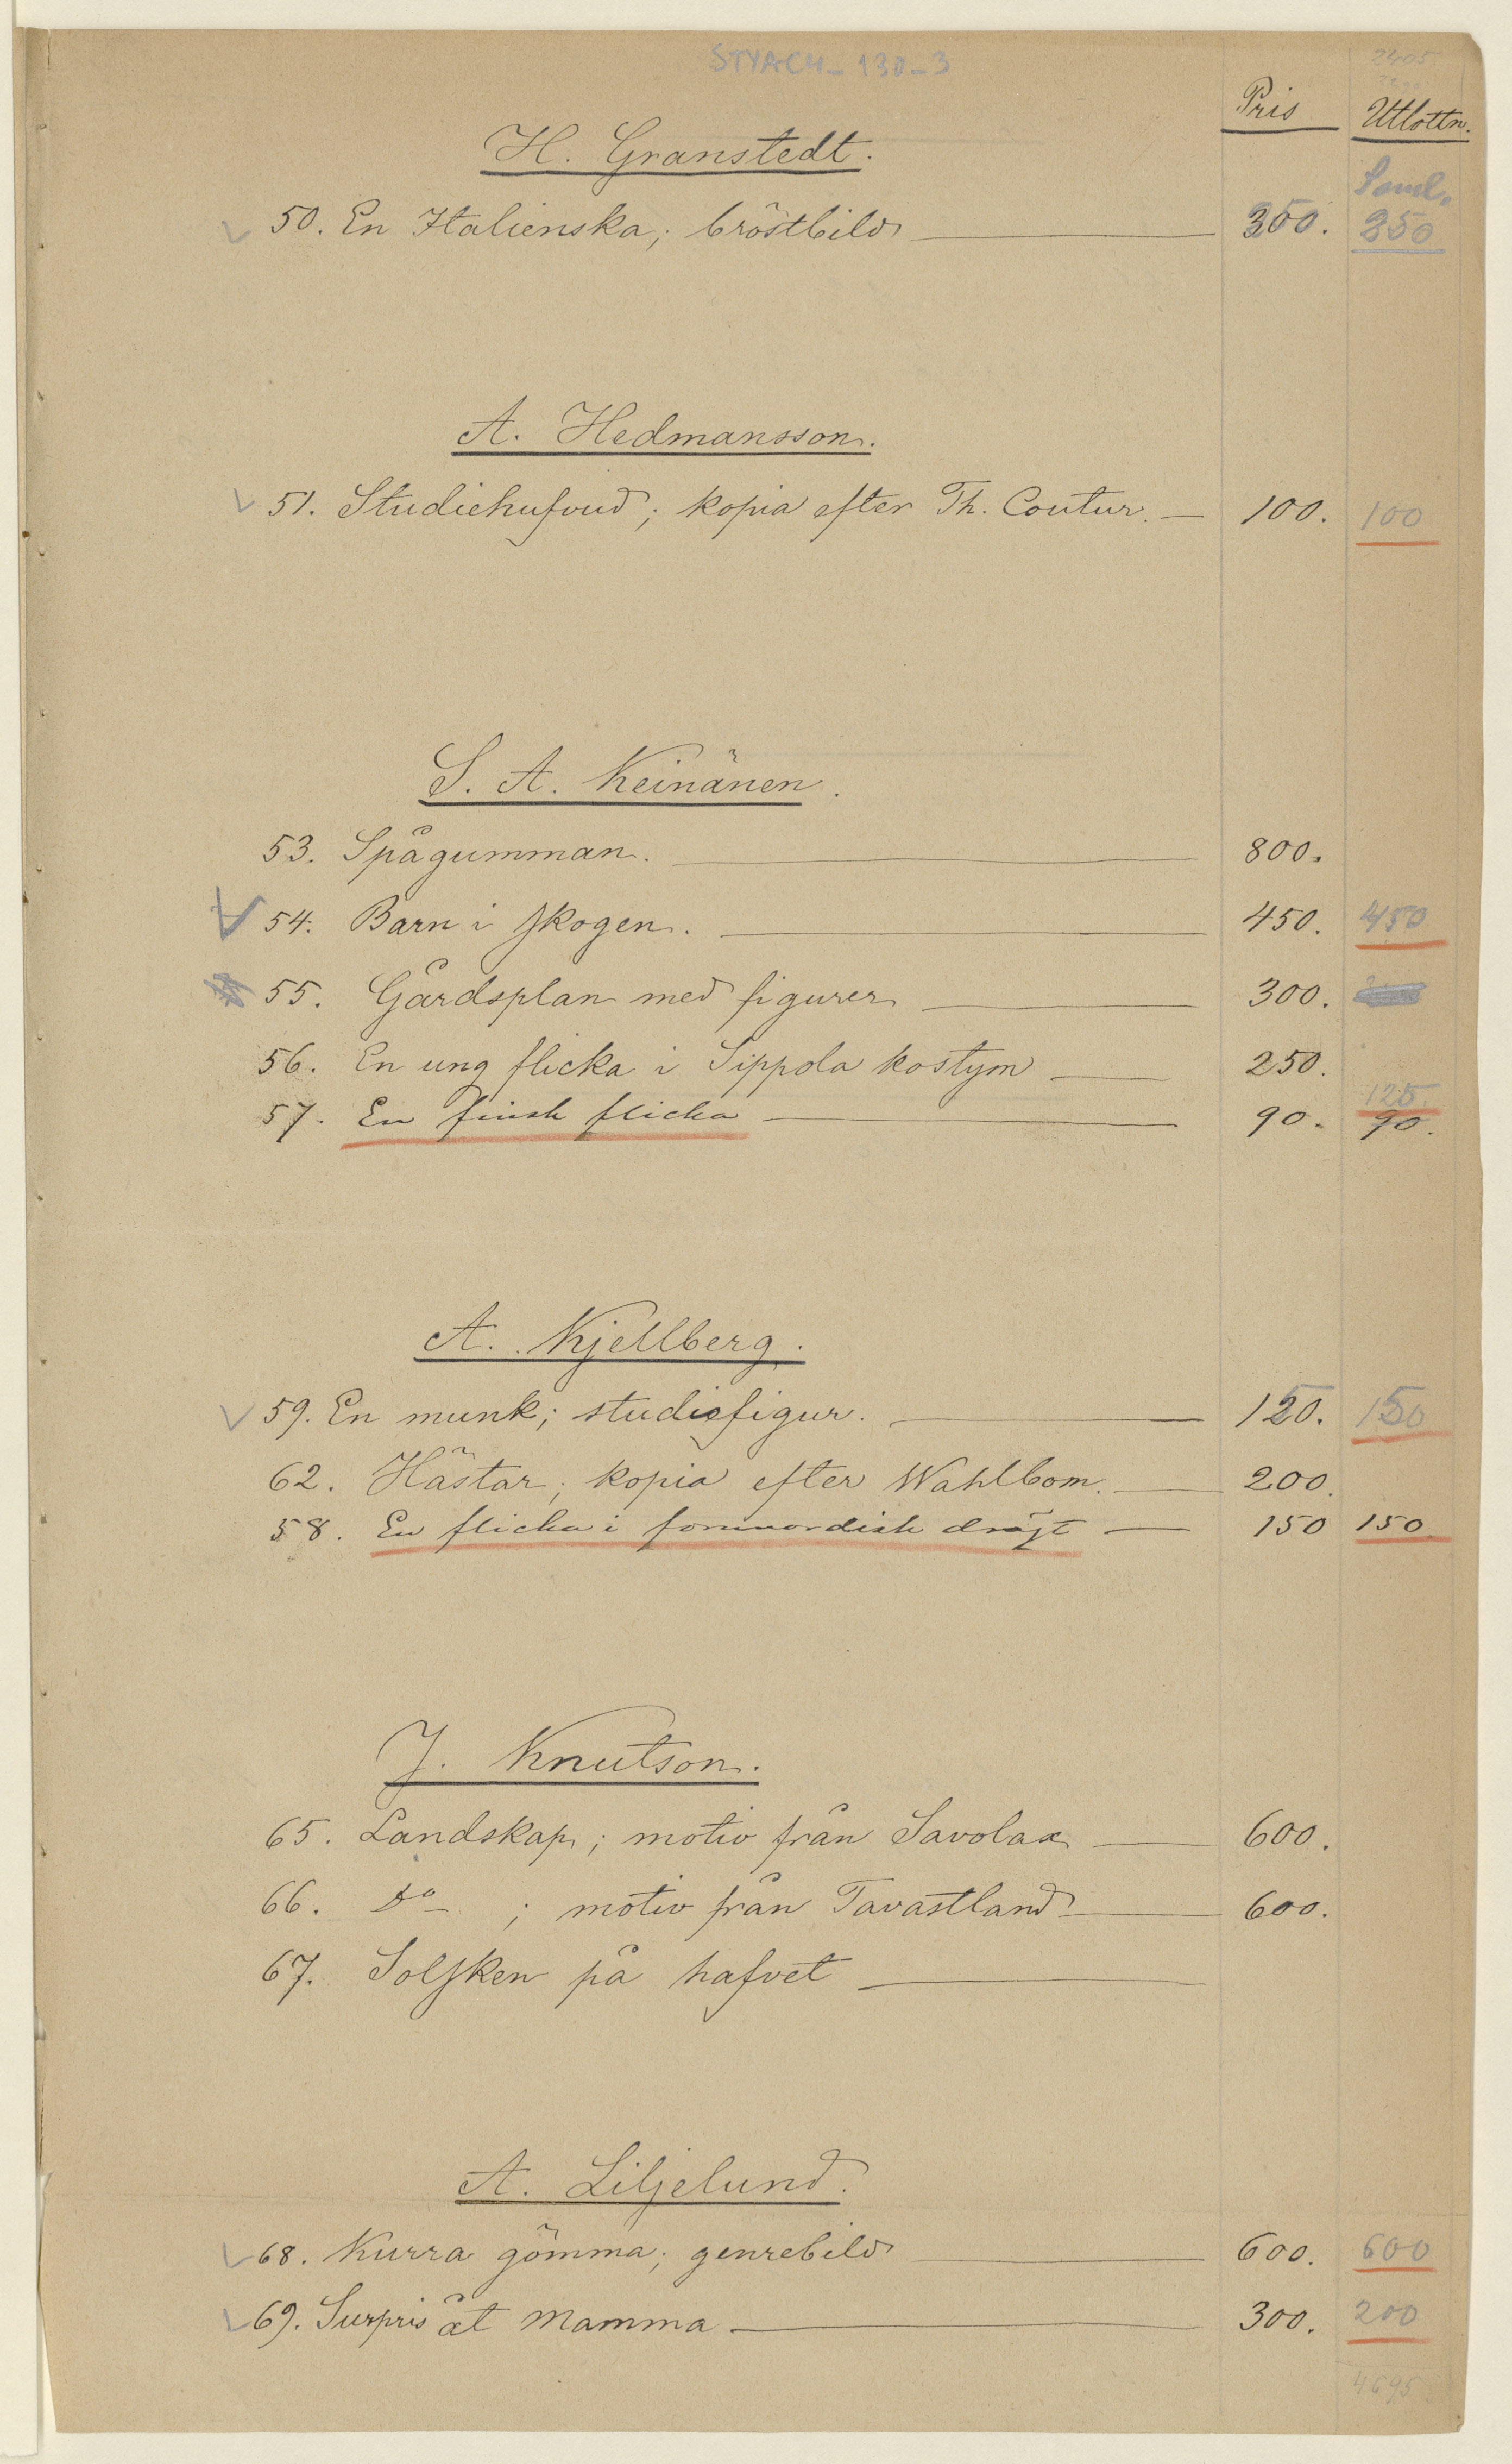 STYACH-130-3
2405
Pris Utlottn.
H. Granstedt.
Saml.
50. En Italienska; bröstbild 350. 350
A. Hedmansson.
51. Studiehufvud; kopia efter Th. Coutur. 100. 100
S. A. Keinänen.
53. Spågumman. 800.
54. Barn i skogen. 450. 450
55. Gårdsplan med figurer 300.
56. En ung flicka i Sippola kostym 250.
125.
57. En finsk flicka 90. 90.
A. Kjellberg.
59. En munk; studiefigur. 150. 150
62. Hästar; kopia efter Wahlbom. 200.
58. En flicka i fornnordisk drägt 150 150.
J. Knutson.
65. Landskap; motiv från Savolax 600.
66. Do ; motiv från Tavastland 600.
67. Solsken på hafvet
A. Liljelund.
68. Kurra gömma; genrebild 600. 600
69. Surpris åt Mamma 300. 200
4695